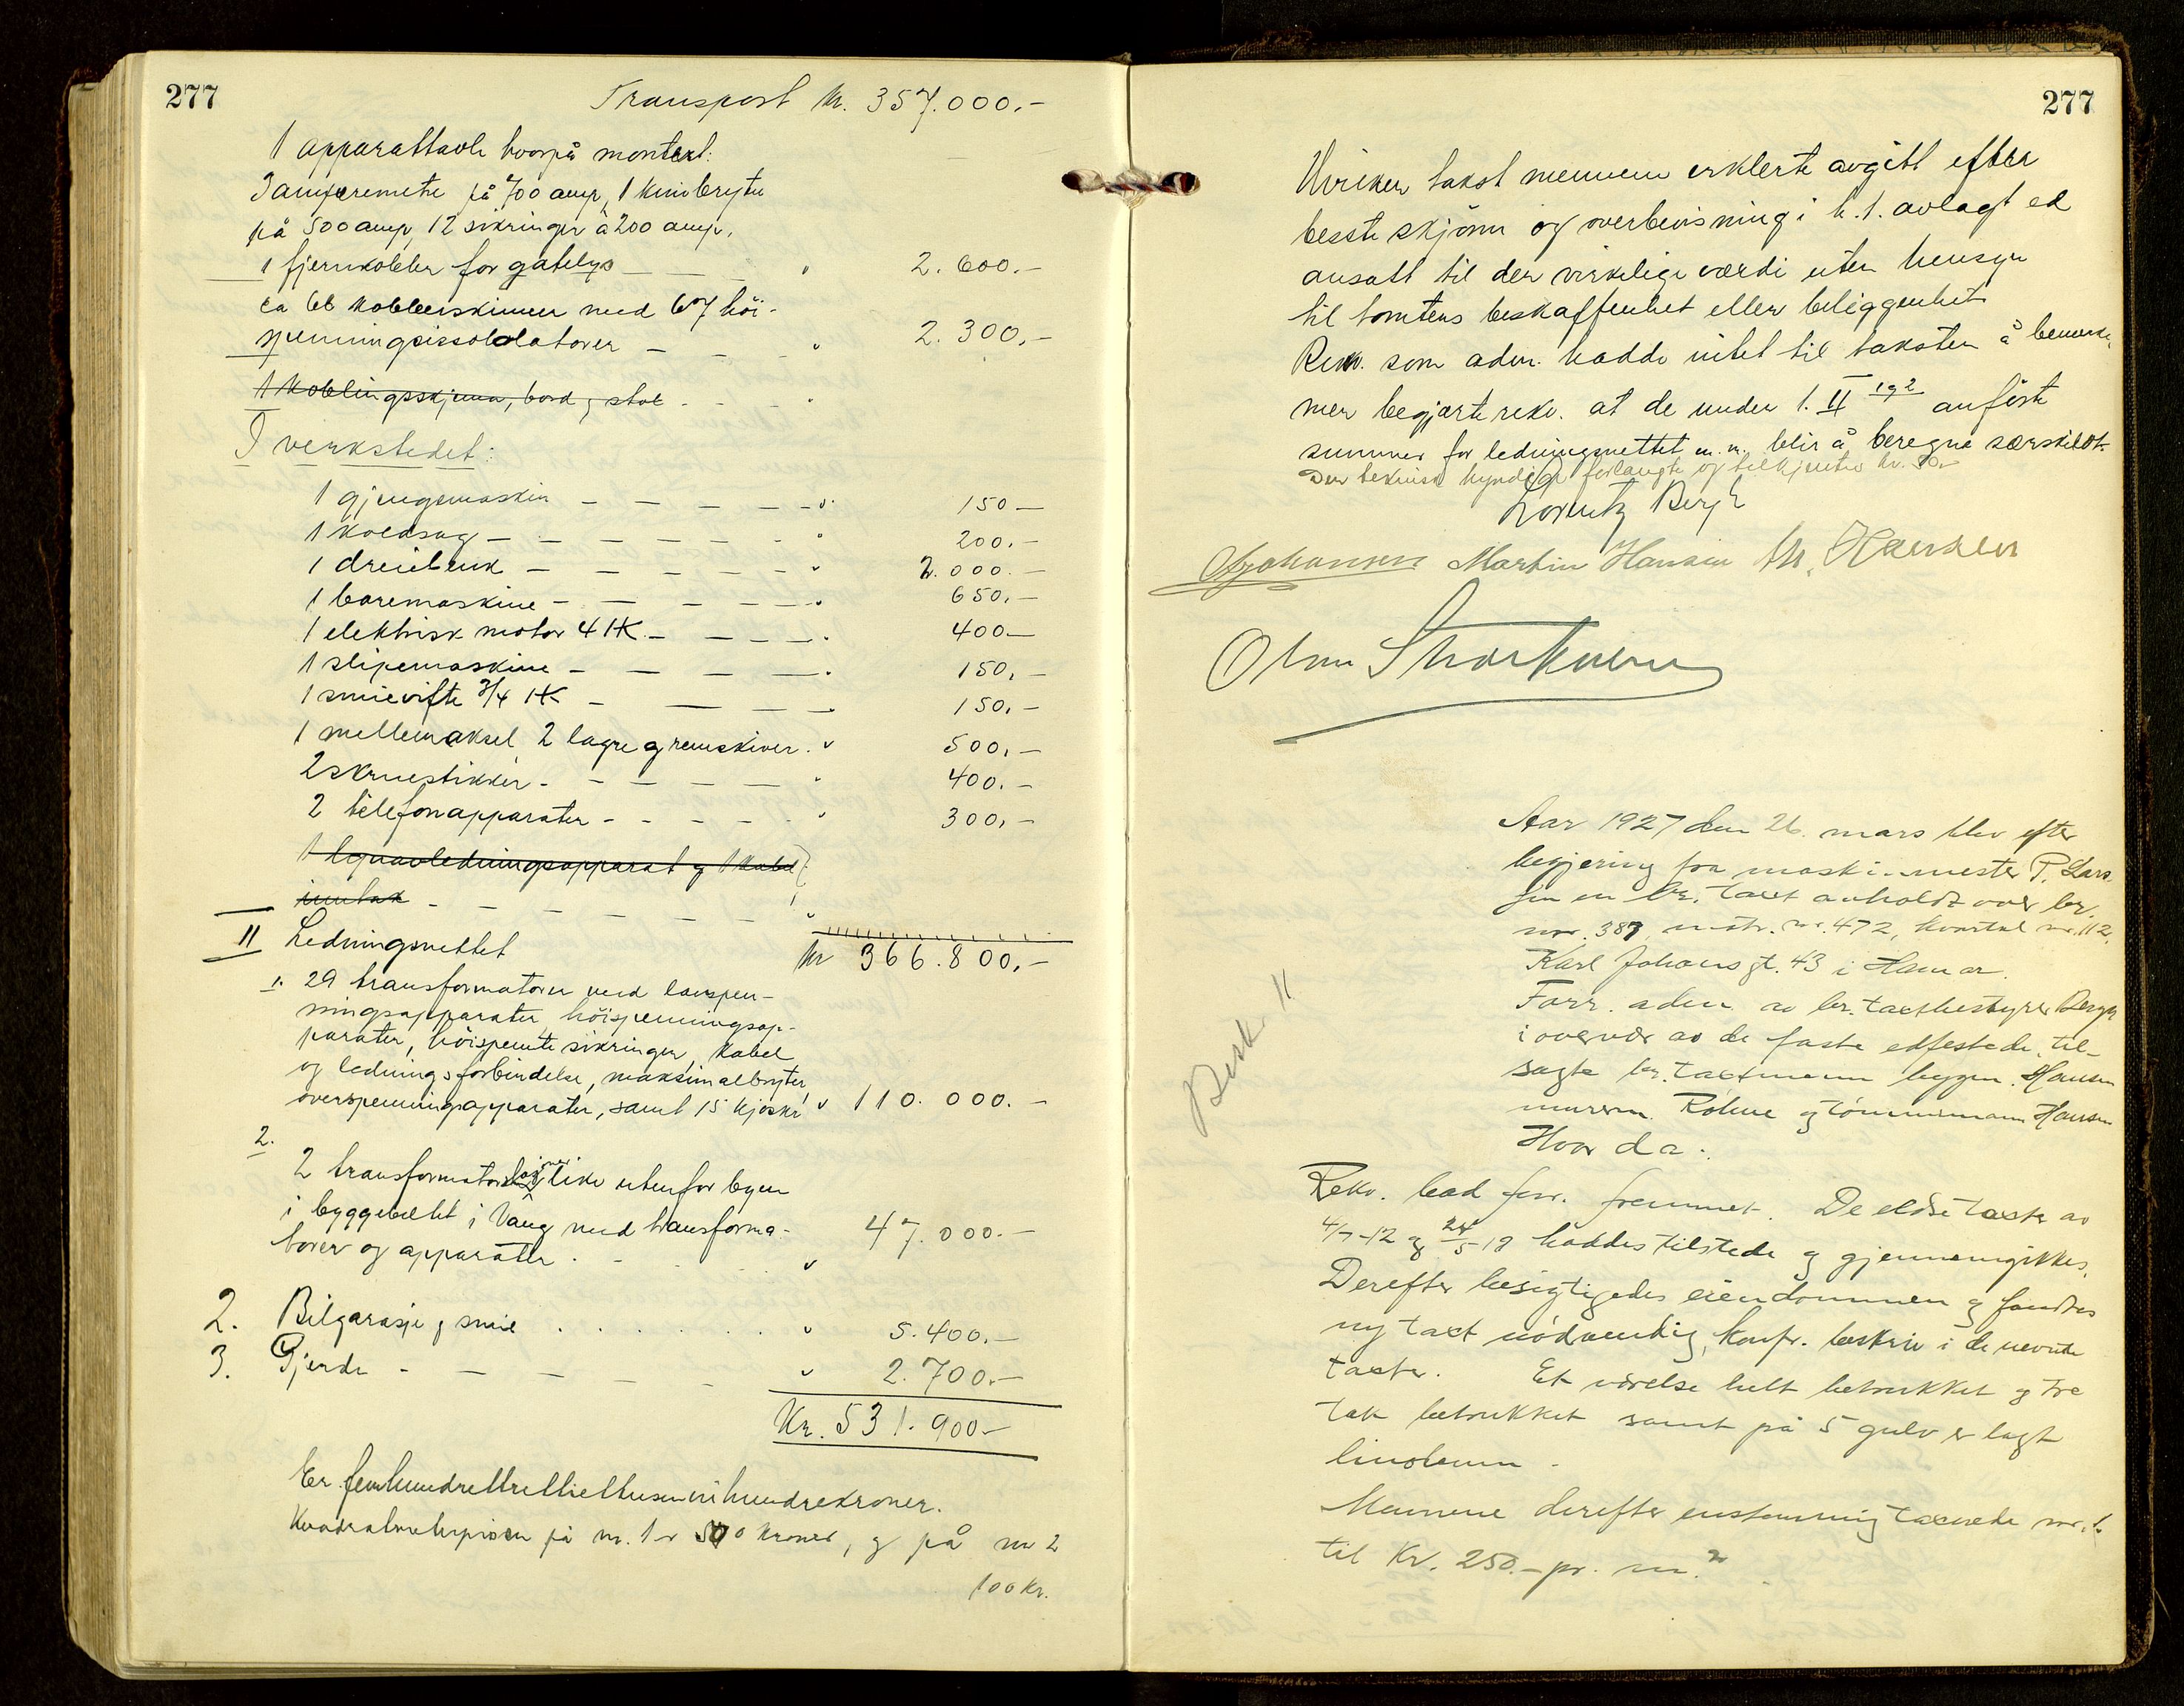 277
Transport kr. 357.000.-
1 apparattavle hvorpå montert:
3 amperemetre på 700 amp, 1 knivbryter
på 500 amp, 12 sikringer à 200 amp,
1 fjernkobler for gatelys — — " 2.600.-
ca 66 kobberskinner med 67 höi-
spenningsissolatorer — — — " 2.300.-
1 koblingsskjema, bord, stol - - - "
I verkstedet:
1 gjengemaskin — — — — — " 150 —
1 koldsag — — — — — — " 200.-
1 dreiebenk — — — — — " 2.000.-
1 boremaskine — — — — — " 650.-
1 elektrisk motor 4 HK. — — — — " 400 —
1 slipemaskine — — — — — " 150.-
1 smievifte 3/4 HK — — — — " 150.-
1 mellemaksel 2 lagre og remskiver. " 500.-
2 skruestikker - - — — — " 400.-
2 telefonapparater - - - - - " 300.-
1 lynavledningsapparat og 1 kabel
inntak - - - - - - - "
kr 366.800.-
II Ledningsnettet
1. 29 transformatorer med lavspen-
ningsapparater höispenningsap-
parater, höispente sikringer, kabel
og ledningsforbindelse, maksimalbryter,
overspenningsapparater, samt 15 kjosker " 110.000.-
2.
2 transformatorkiosker like utenfor byen
i byggebeltet i Vang med transforma-
torer og apparater - - - " 47.000.-
2. Bilgarasje og smie . . . . . " 5.400.-
3. Gjerde - — — — — " 2.700.-
Kr. 531.900.-
Er femhundretrettiettusennihundrekroner.
Kvadratmeterprisen på nr. 1 er 500 kroner, og på nr 2
100 Kr.
277
Hvilken takst mennene erklerte avgitt efter
besste skjönn og overbevisning i h.t. avlagt ed
ansatt til den virkelige værdi uten hensyn
til tomtens beskaffenhet eller beliggenhet
Rekv. som adm. hadde intet til taksten å bemerke,
men begjærte rekv. at de under 1. II 1 og 2 anförte
summer for ledningsnettet m.m. blir å beregne særskilt.
Den tekniske kyndige forlangte og tilkjentes kr. 50.-
Lorentz Bergh
Johansen Martin Hansen M. Hansen
Olav Storkveen
Aar 1927 den 26. mars blev efter
begjering fra maskinmester P. Lars-
sen en br. taxt avholdt over br.
nr. 387 matr. nr. 472, kvartal nr. 112,
Karl Johans gt. 43 i Hamar.
Forr. adm. av br. taxtbestyrer Bergh
i overvær av de faste edfestede, til-
sagte br. taxtmenn bygm. Hansen
murerm. Röhne og tömmermann Hansen
Hvor da:
Besk 11
Rekv. bad forr. fremmet. De eldre taxter av
4/7-12 og 24/5-18 haddes tilstede og gjennemgikkes.
Derefter besigtigedes eiendommen og fandtes
ny taxt nödvendig, konfr. beskriv i de nevnte
taxter. Et værelse helt betrukket og tre
tak betrukket samt på 5 gulv er lagt
linoleum -
Mennene derefter enstemmig taxerede nr. 1.
til Kr. 250.- pr. m.²